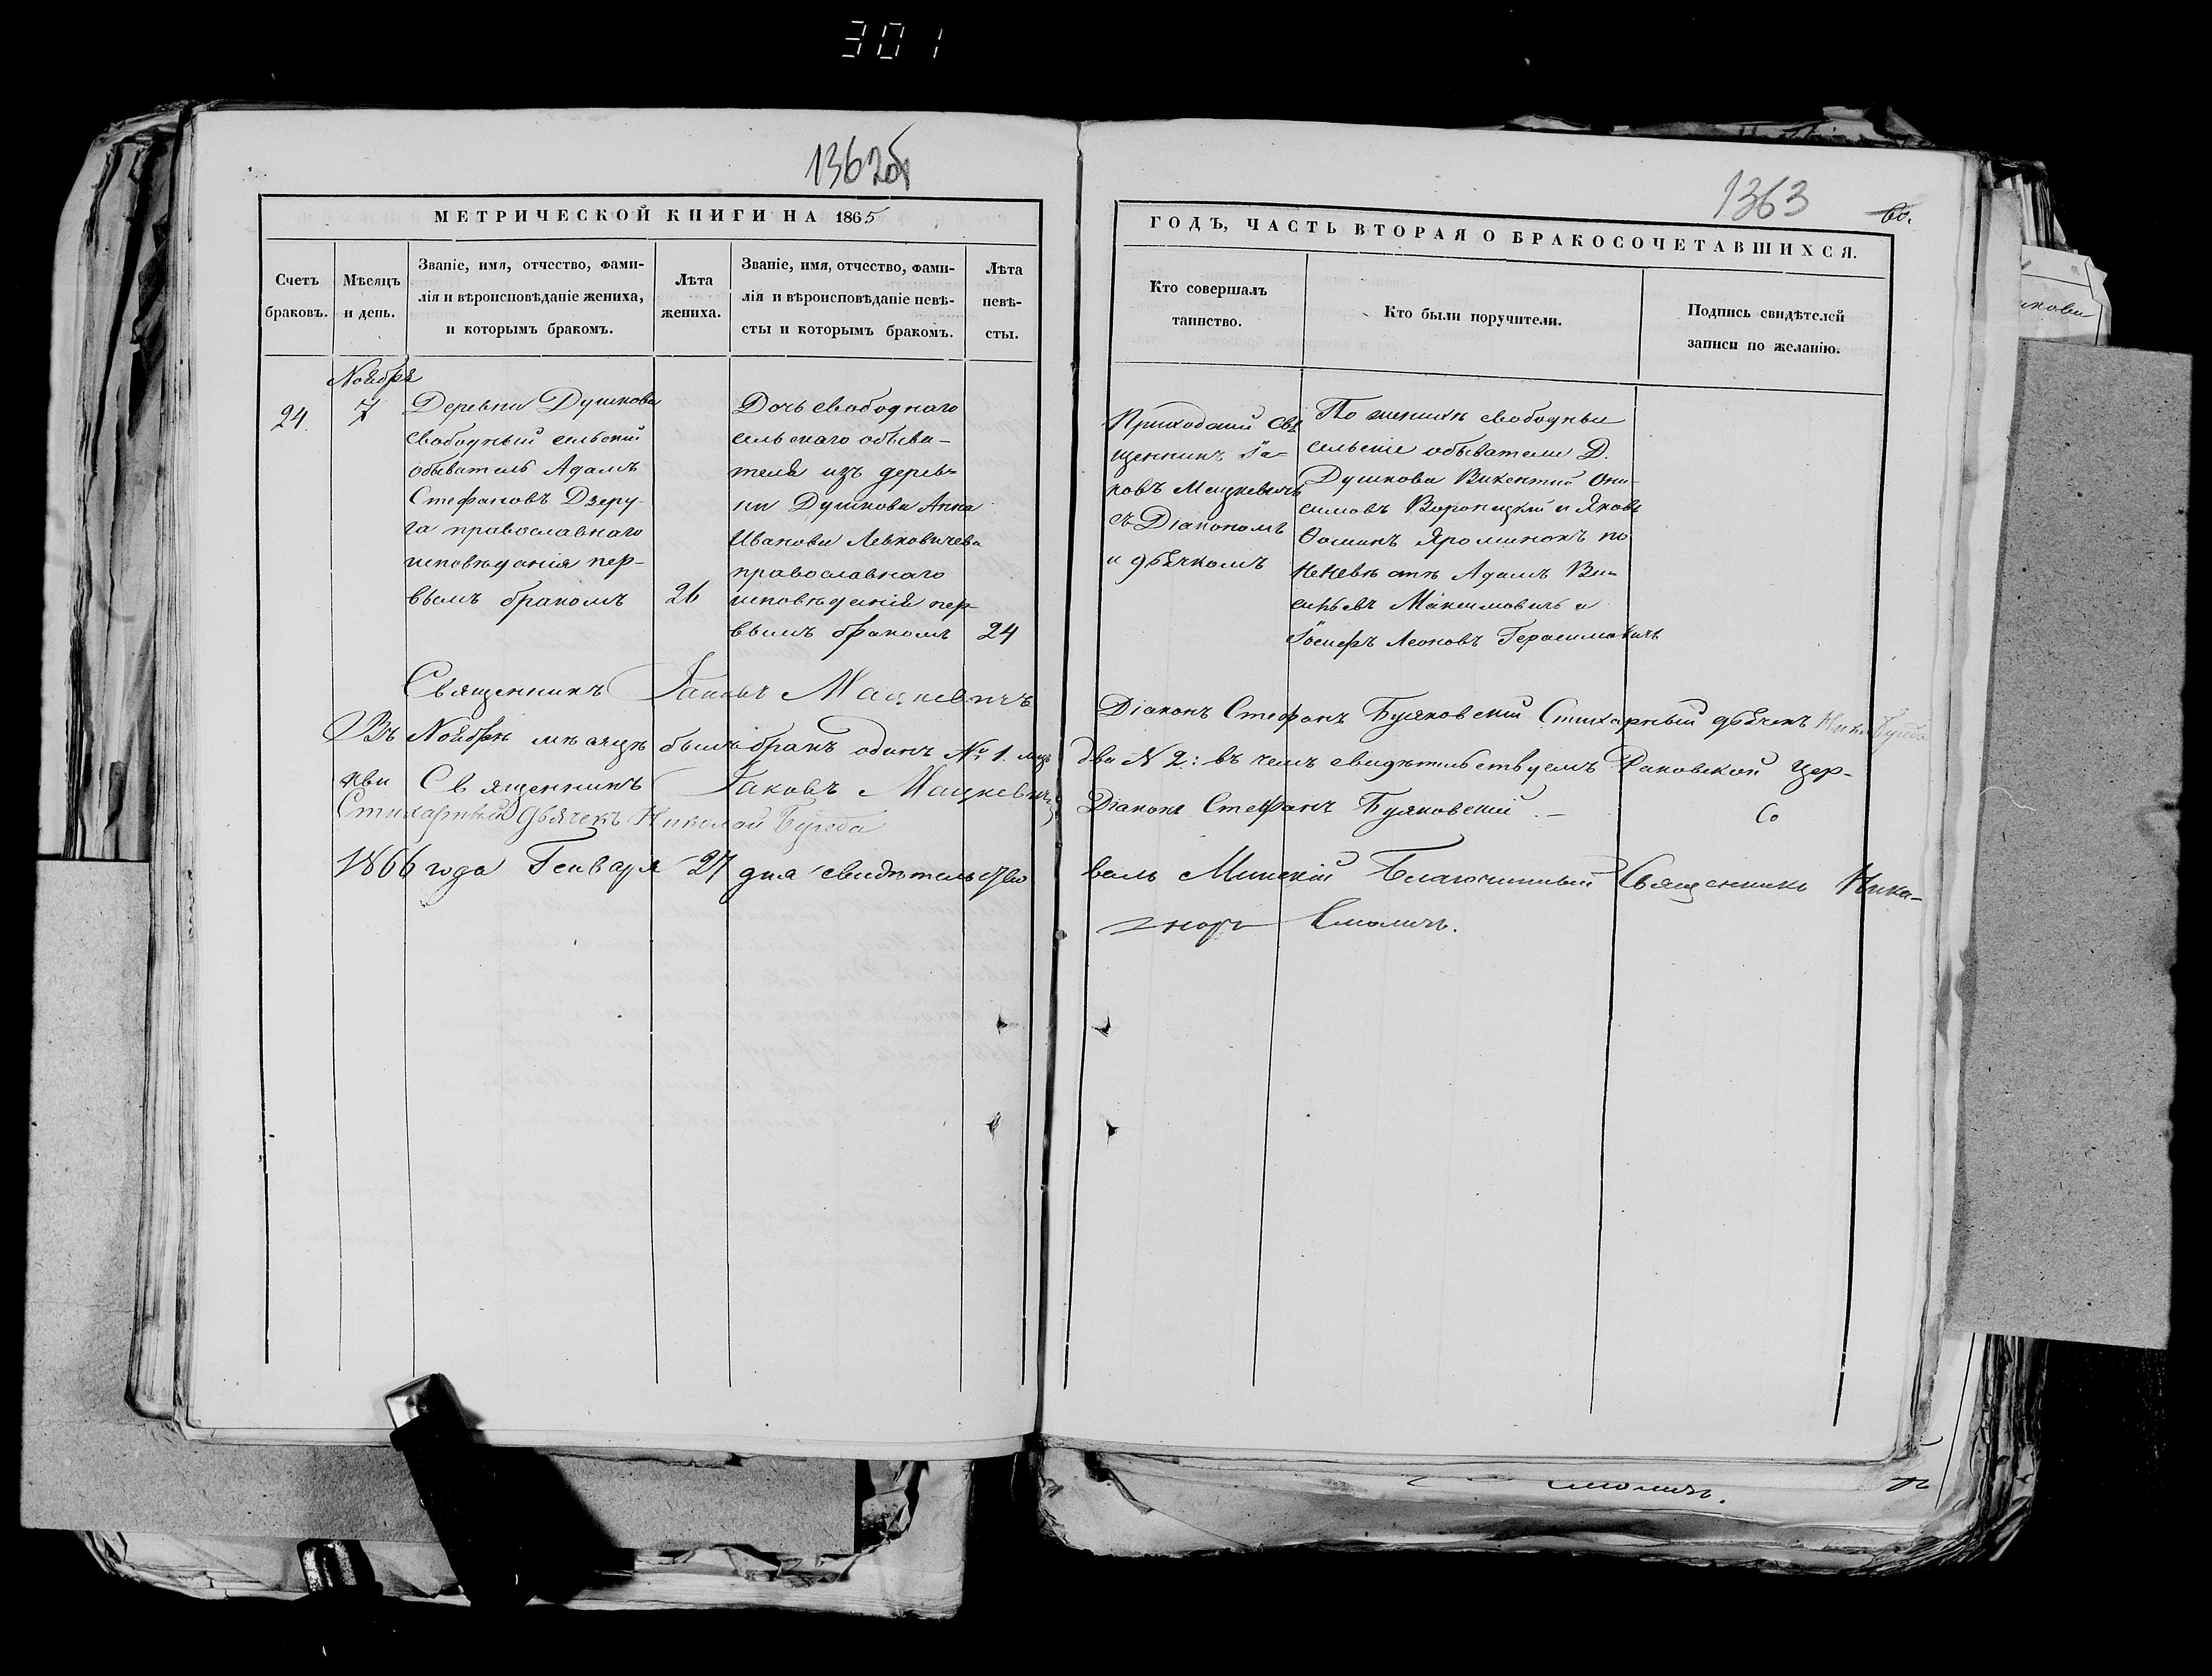 301
1362об
МЕТРИЧЕСКОЙ КНИГИ НА 1865
Счетъ браковъ.
Мѣсяцъ и день.
Званіе, имя, отчество, фами-
лія и вѣроисповѣданіе жениха,
и которымъ бракомъ.
Лѣта жениха.
Званіе, имя, отчество, фами-
лія и вѣроисповѣданіе невѣ-
сты и которымъ бракомъ.
Лѣта невѣ-
сты.
24.
Ноября
7
Деревни Душкова
свободный сельскій
обыватель Адамъ
Стефановъ Дзеру-
га православнаго
исповѣданія пер-
вымъ бракомъ
26
Дочь свободнаго
сельскаго обыва-
теля изъ дерев-
ни Душкова Анна
Иванова Левковичева
православнаго
исповѣданія пер-
вымъ бракомъ
24
Священникъ Іаковъ Мацкевичъ
Въ Ноябрѣ мѣсяцѣ былъ бракъ одинъ № 1. лицъ
кви Священникъ Іаковъ Мацкевичъ
Стихарный дьячекъ Николай
1866 года Генваря 27 дня свидетельство
1363
60.
ГОДЪ, ЧАСТЬ ВТОРАЯ О БРАКОСОЧЕТАВШИХСЯ.
Кто совершалъ
таинство.
Кто были поручители.
Подпись свидѣтелей
записи по желанію.
Приходскій Свя
щенникъ Іа-
ковъ Мацкевичъ
съ Діакономъ
и дьячкомъ
По женихѣ свободные
сельскіе обыватели Д.
Душкова Викентій Они-
симовъ Вороницкій и Яковъ
Ѳоминъ Яроминокъ по
невѣстѣ Адамъ Ви-
Максимовичъ и
Іосифъ Леоновъ Герасимовичъ
Діаконъ Стефанъ Буяковскій Стихарный дьячекъ
два № 2: въ чемъ свидѣтельствуемъ Раковской Цер-
Діаконъ Стефанъ Буяковскій. —
Со
валъ Минскій Благочинный Священникъ Ника-
норъ Смоличъ.
Смоличъ.